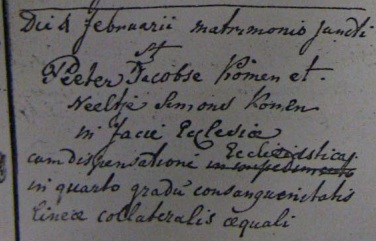 Die 4 februarii matrimonio juncti
st
Peeter Jacobse Komen et.
Neeltje Simons Komen
in facie Ecclesiæ
Ecclesiastica
cum dispensatione in impedimento
in quarto gradu consanguinitatis
lineæ collateralis æquali